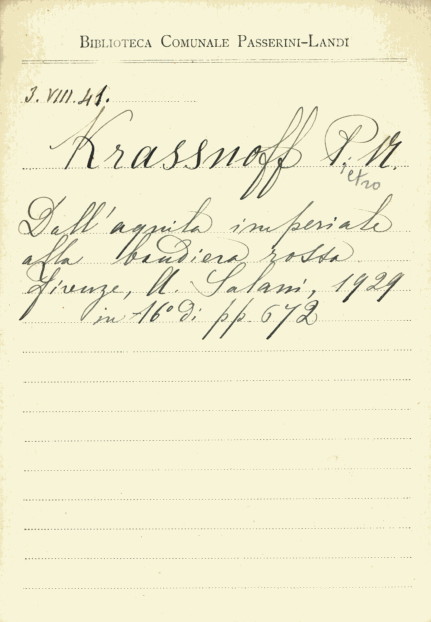 BIBLIOTECA COMUNALE PASSERINI-LANDI
3.VIII.41.
Krassnoff P. N.
ietro
Dall'aquila imperiale
alla bandiera rossa
Firenze, A. Salani, 1929
in 16° di pp. 672